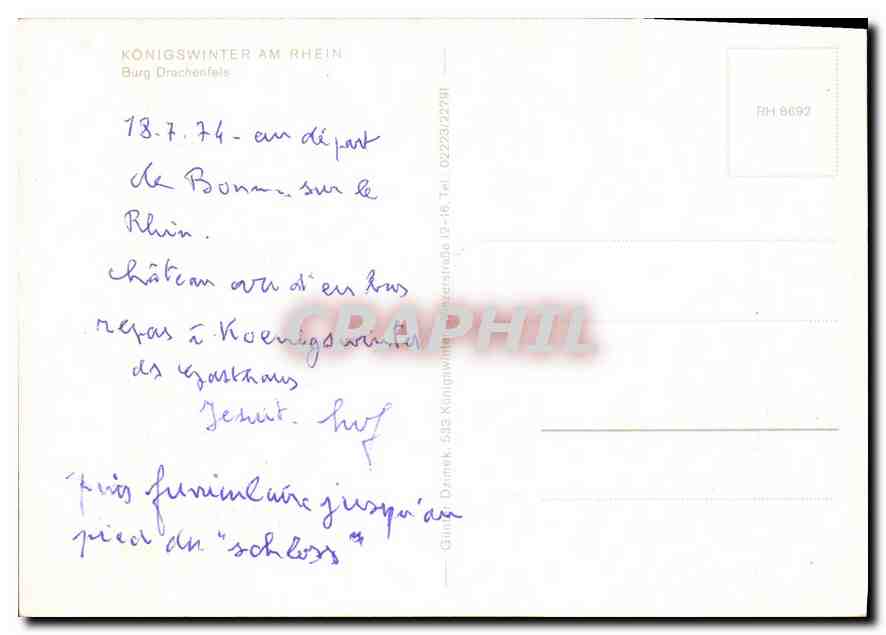 KÖNIGSWINTER AM RHEIN
Burg Drachenfels
18.7.74 - au départ
de Bonn.. sur le
Rhin.
château vu d'en bas
repas à Koenigswinter
ds gasthaus
Jesuit. hof
puis funiculaire jusqu'au
pied du "schloss"
Günter Dzimek, 533 Königswinter, Winzerstraße 12-16, Tel. 02223/22791
RH 8692
CPAPHIL